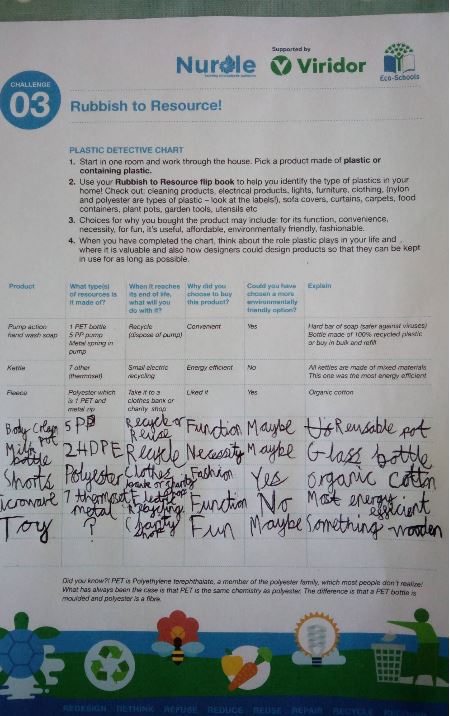 Nurdle
Supported by
Viridor
Eco-Schools
CHALLENGE
03
Rubbish to Resource!
PLASTIC DETECTIVE CHART
1. Start in one room and work through the house. Pick a product made of plastic or
containing plastic.
2. Use your Rubbish to Resource flip book to help you identify the type of plastics in your
home! Check out: cleaning products, electrical products, lights, furniture, clothing, (nylon
and polyester are types of plastic – look at the labels!), sofa covers, curtains, carpets, food
containers, plant pots, garden tools, utensils etc
3. Choices for why you bought the product may include: for its function, convenience,
necessity, for fun, it's useful, affordable, environmentally friendly, fashionable.
4. When you have completed the chart, think about the role plastic plays in your life and
where it is valuable and also how designers could design products so that they can be kept
in use for as long as possible.
Product What type(s) of resources is it made of? When it reaches its end of life, what will you do with it? Why did you choose to buy this product? Could you have chosen a more environmentally friendly option? Explain
Pump action hand wash soap 1 PET bottle 5 PP pump Metal spring in pump Recycle (dispose of pump) Convenient Yes Hard bar of soap (safer against viruses) Bottle made of 100% recycled plastic or buy in bulk and refill
Kettle 7 other (thermoset) Small electric recycling Energy efficient No All kettles are made of mixed materials This one was the most energy efficient
Fleece Polyester which is 1 PET and metal zip Take it to a clothes bank or charity shop Liked it Yes Organic cotton
Body Cream pot 5 PP Recycle or Reuse Function Maybe Reusable pot
Milk bottle 2 HDPE Recycle Necessity Maybe Glass bottle
Shorts Polyester Clothes bank or charity Fashion Yes Organic cottn
icrowave 7 thermoset metal Recycling Function No Most energy efficient
Toy ? Charity shop Fun Maybe Something wooden
Did you know?! PET is Polyethylene terephthalate, a member of the polyester family, which most people don't realize!
What has always been the case is that PET is the same chemistry as polyester. The difference is that a PET bottle is
moulded and polyester is a fibre.
REDESIGN RETHINK REFUSE REDUCE REUSE REPAIR RECYCLE